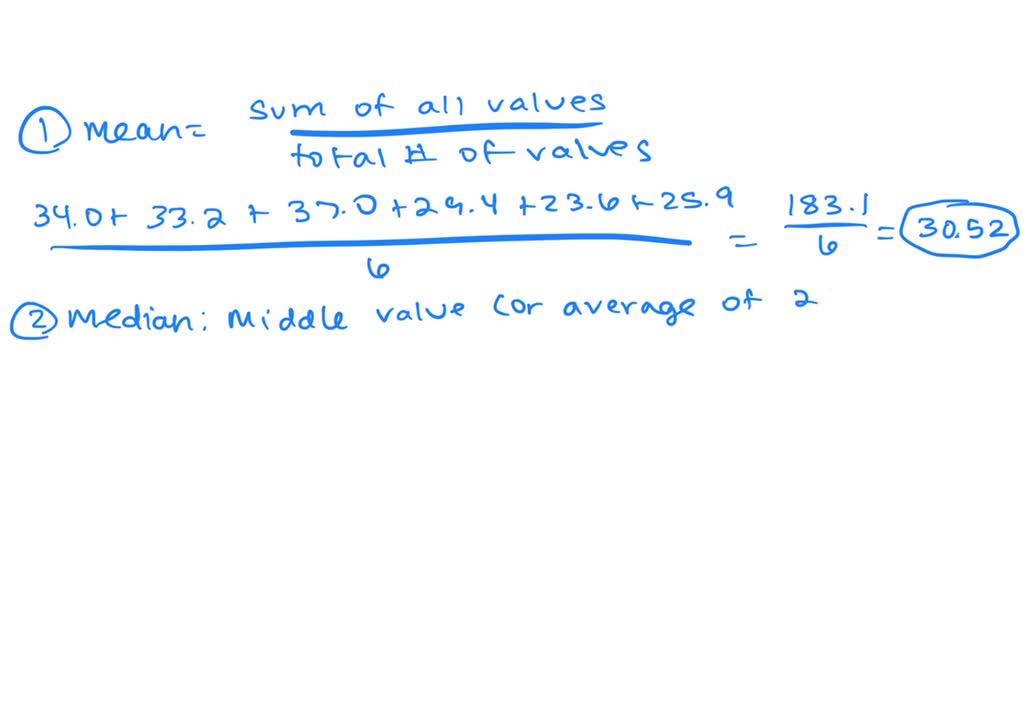 ① mean = sum of all values / total # of values
34.0 + 33.2 + 37.0 + 29.4 + 23.6 + 25.9 / 6 = 183.1 / 6 = 30.52
② median: Middle value (or average of 2